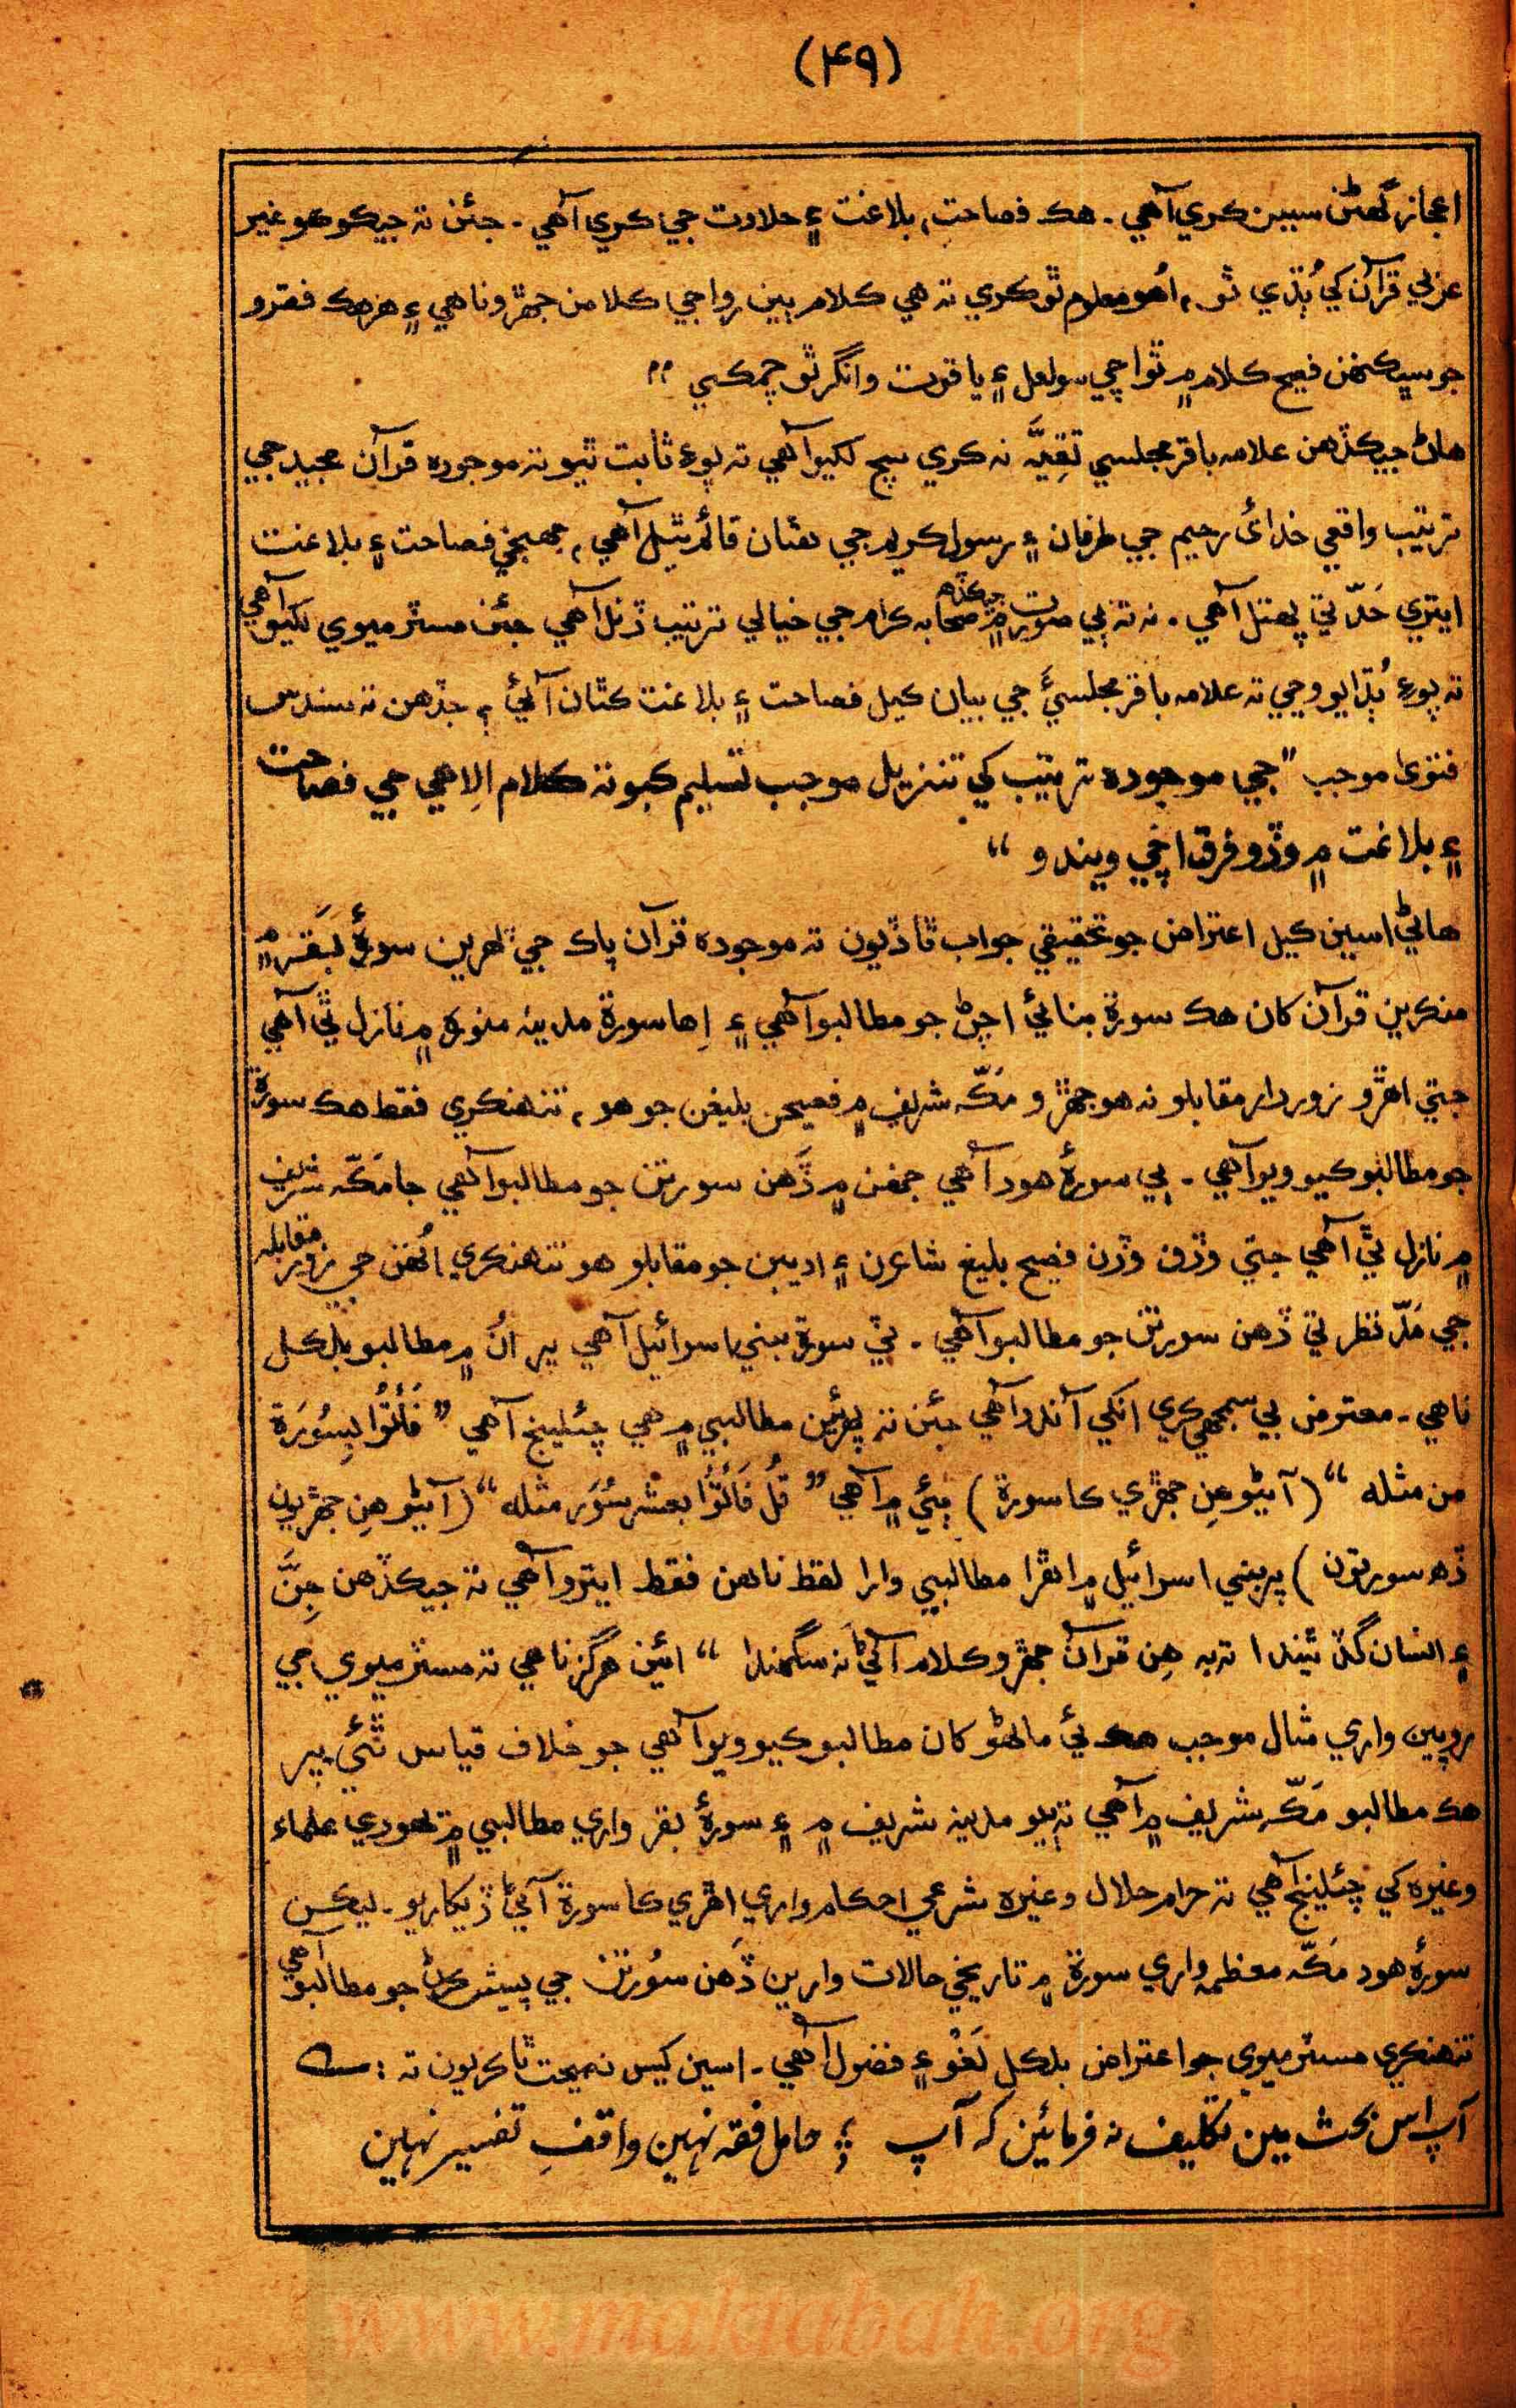 (۴۹)
اعجاز گهڻن سببن ڪري آهي ـ هڪ فصاحت، بلاغت ۽ حلاوت جي ڪري آهي ـ جئن ته جيڪو ڪو غير
عربي قرآن کي ٻُڌي ٿو، اُهو معلوم ٿو ڪري ته هي ڪلام ٻين رواجي ڪلامن جهڙو ناهي ۽ هر هڪ فقرو
جو سڀ ڪنهن فصيح ڪلام ۾ ٿو اچي سو لعل ۽ ياقوت وانگر ٿو چمڪي ״
هاڻ جيڪڏهن علامه باقر مجلسي تَقِيَّہ نہ ڪري سچ لکيو آهي تہ پوءِ ثابت ٿيو تہ موجوده قرآن مجيد جي
ترتيب واقعي خداءِ رحيم جي طرفان ۽ رسول ڪريم جي هٿان قائم ٿيل آهي، جهنجي فصاحت ۽ بلاغت
ايتري حَدّ تي پهتل آهي ـ نہ تہ ٻي صورت ۾ جيڪڏهه صحابہ ڪرام جي خيالي ترتيب ڏنل آهي جئن مسٽر ميوي لکيو آهي
تہ پوءِ ٻُڌايو وڃي تہ علامہ باقر مجلسيءَ جي بيان ڪيل فصاحت ۽ بلاغت ڪٿان آئي؟ جڏهن تہ سندس
فتويٰ موجب "جي موجوده ترتيب کي تنزيل موجب تسليم ڪبو تہ ڪلام اِلاهي جي فصاحت
۽ بلاغت ۾ وڏو فرق اچي ويندو “
هاڻي اسين ڪيل اعتراض جو تحقيقي جواب ٿا ڏيون تہ موجوده قرآن پاڪ جي پهرين سورةُ بَقَره ۾
منڪرين قرآن کان هڪ سورة بنائي اچڻ جو مطالبو آهي ۽ اِها سورة مدينہ منوره ۾ نازل ٿي آهي
جتي اهڙو زوردار مقابلو نہ هو جهڙو مَڪّہ شريف ۾ فصيحن بليغن جو هو، تنهنڪري فقط هڪ سورة
جو مطالبو ڪيو ويو آهي ـ ٻي سورةُ هود آهي جنهن ۾ ڏَهن سورتن جو مطالبو آهي جا مَڪّہ شريف
۾ نازل ٿي آهي جتي وڏن وڏن فصيح بليغ شاعرن ۽ اديبن جو مقابلو هو تنهنڪري اُنهن جي زور مقابلہ
جي مَدّنظر تي ڏهن سورتن جو مطالبو آهي ـ ٽي سورة بني اسرائيل آهي پر اُن ۾ مطالبو بلڪل
ناهي ـ معترض بي سمجهي ڪري انکي آندو آهي جئن تہ پهرئين مطالبي ۾ هي چئلينج آهي ”فَأْتُوْا بِسُوْرَة
من مثلہ “ (آڻيو هِن جهڙي ڪا سورة) ٻئي ۾ آهي ”قُل فَأْتُوْا بعشر سُوَر مثلہ “ (آڻيو هِن جهڙيون
ڏه سورتون) پر بني اسرائيل ۾ اهڙا مطالبي وارا لفظ ناهن فقط ايترو آهي تہ جيڪڏهن جِنَّ
۽ انسان گڏ ٿيندا تہ بہ هِن قرآن جهڙو ڪلام آڻي نہ سگهندا “ ائين هرگز ناهي تہ مسٽر ميوي جي
روپين واري مثال موجب هڪ ئي ماڻهو کان مطالبو ڪيو ويو آهي جو خلاف قياس ٿئي پر
هڪ مطالبو مَڪّہ شريف ۾ آهي تہ ٻيو مدينہ شريف ۾ ۽ سورةُ بقر واري مطالبي ۾ يهودي علماء
وغيره کي چئلينج آهي تہ حرام حلال وغيره شرعي احڪام واري اهڙي ڪا سورة آڻي ڏيکاريو ـ ليڪن
سورةُ هود مَڪّہ معظمہ واري سورة ۾ تاريخي حالات وارين ڏَهن سُورتن جي پيش ڪرڻ جو مطالبو آهي
تنهنڪري مسٽر ميوي جو اعتراض بلڪل لَغْو ۽ فضول آهي ـ اسين کيس نصيحت ٿا ڪريون تہ : ــ
آپ اس بحث مين تکليف نہ فرمائين کہ آپ ؛ حامل فقہ نہين واقفِ تفسير نہين
www.maktabah.org